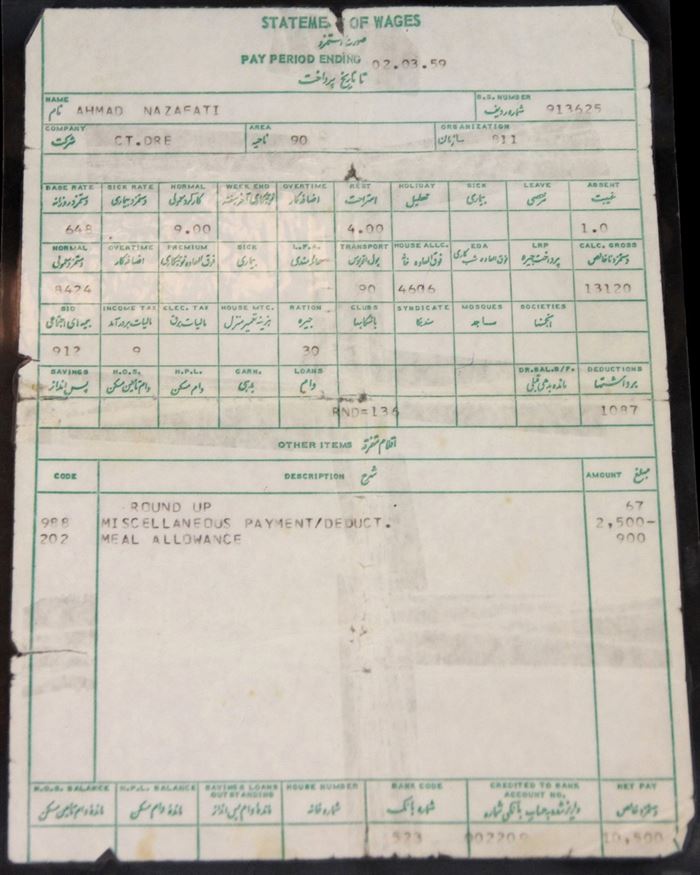 STATEME OF WAGES
صورت دستمزد
PAY PERIOD ENDING 02.03.59
تا تاریخ پرداخت
NAME S.S. NUMBER
نام AHMAD NAZAFATI شماره ردیف 913625
COMPANY AREA ORGANIZATION
شرکت CT.DRE ناحیه 90 سازمان 811
BASE RATE SICK RATE NORMAL WEEK END OVERTIME REST HOLIDAY SICK LEAVE ABSENT
دستمزد روزانه دستمزد بیماری کارکرد معمولی اضافه کار استراحت تعطیل بیماری مرخصی غیبت
648 9.00 4.00 1.0
NORMAL OVERTIME PREMIUM SICK L.F.A. TRANSPORT HOUSE ALLC. EDA LRP CALC. GROSS
دستمزد معمولی اضافه کار فوق العاده نوبتکاری بیماری پول اتوبوس فوق العاده خانه پرداخت جیره دستمزد ناخالص
8424 90 4606 13120
SIO INCOME TAX ELEC. TAX HOUSE MTC. RATION CLUBS SYNDICATE MOSQUES SOCIETIES
بیمه ای اجتماعی مالیات بر درآمد مالیات برق هزینه تعمیر منزل جیره باشگاهها سندیکا مساجد انجمنها
912 9 30
SAVINGS H.O.S. H.P.L. GARN. LOANS DR.BAL.B/F. DEDUCTIONS
پس انداز وام تأمین مسکن وام مسکن بدهی وام مانده بدهی قبلی برداشتها
RND=136 1087
OTHER ITEMS اقلام متفرقه
CODE DESCRIPTION شرح AMOUNT مبلغ
ROUND UP 67
988 MISCELLANEOUS PAYMENT/DEDUCT. 2,500-
202 MEAL ALLOWANCE 900
H.O.S. BALANCE H.P.L. BALANCE SAVINGS LOANS OUTSTANDING HOUSE NUMBER BANK CODE CREDITED TO BANK ACCOUNT NO. NET PAY
مانده وام تأمین مسکن مانده وام مسکن مانده وام پس انداز شماره خانه شماره بانک واریز شده بحساب بانکی شماره دستمزد خالص
523 002209 10,500